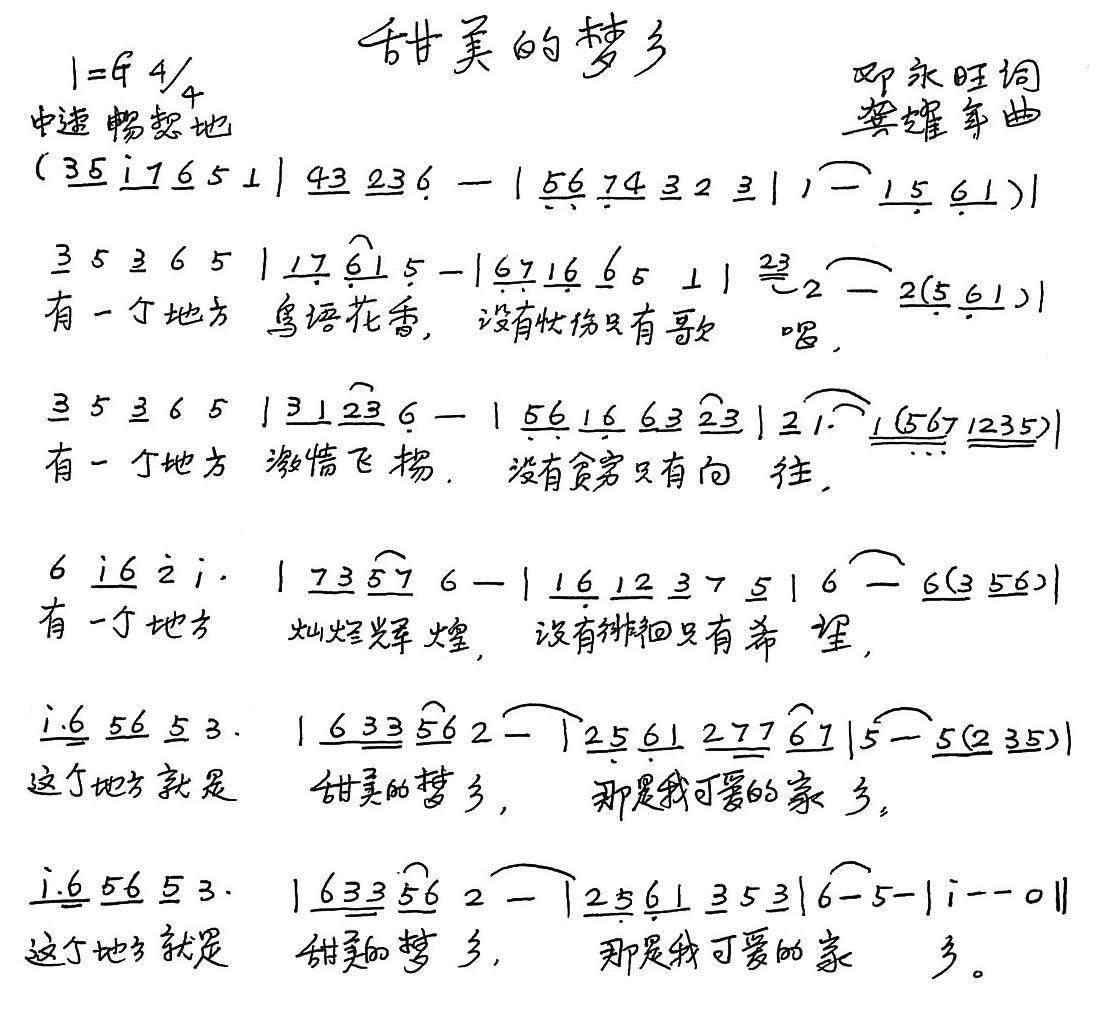 甜美的梦乡
1=G 4/4
邓永旺词
中速 畅想地
龚耀年曲
(35 i7 6 5 1 | 43 23 6 — | 56 74 3 2 3 | 1 — 15 61) |
3 5 3 6 5 | 17 61 5 — | 67 16 6 5 1 | 23 2 — 2(5 61) |
有一个地方 鸟语花香, 没有忧伤只有歌 唱,
3 5 3 6 5 | 31 23 6 — | 56 16 63 23 | 2 1. 1(567 1235) |
有一个地方 激情飞扬. 没有贫穷只有向 往,
6 i6 2 i. | 73 57 6 — | 16 12 3 7 5 | 6 — 6(3 56) |
有一个地方 灿烂辉煌, 没有徘徊只有希 望,
i.6 56 5 3. | 633 56 2 — | 25 61 277 67 | 5 — 5(2 35) |
这个地方就是 甜美的梦乡, 那是我可爱的家乡。
i.6 56 5 3. | 633 56 2 — | 25 61 3 5 3 | 6 — 5 — | i - - 0 ‖
这个地方就是 甜美的梦乡, 那是我可爱的家 乡。